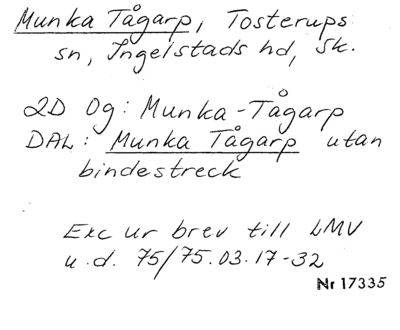 Munka Tågarp, Tosterups
sn, Ingelstads hd, Sk.
2D 0g: Munka-Tågarp
DAL: Munka Tågarp utan
bindestreck
Exc ur brev till LMV
u.d. 75/75.03.17-32
Nr 17335